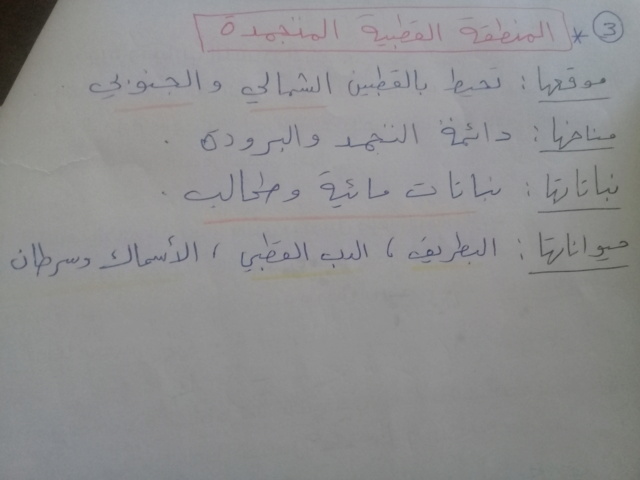 ③ * المنطقة القطبية المتجمدة
موقعها : تحيط بالقطبين الشمالي والجنوبي
مناخها : دائمة التجمد والبرودة .
نباتاتها : نباتات مائية وطحالب .
حيواناتها : البطريق ، الدب القطبي ، الأسماك وسرطان